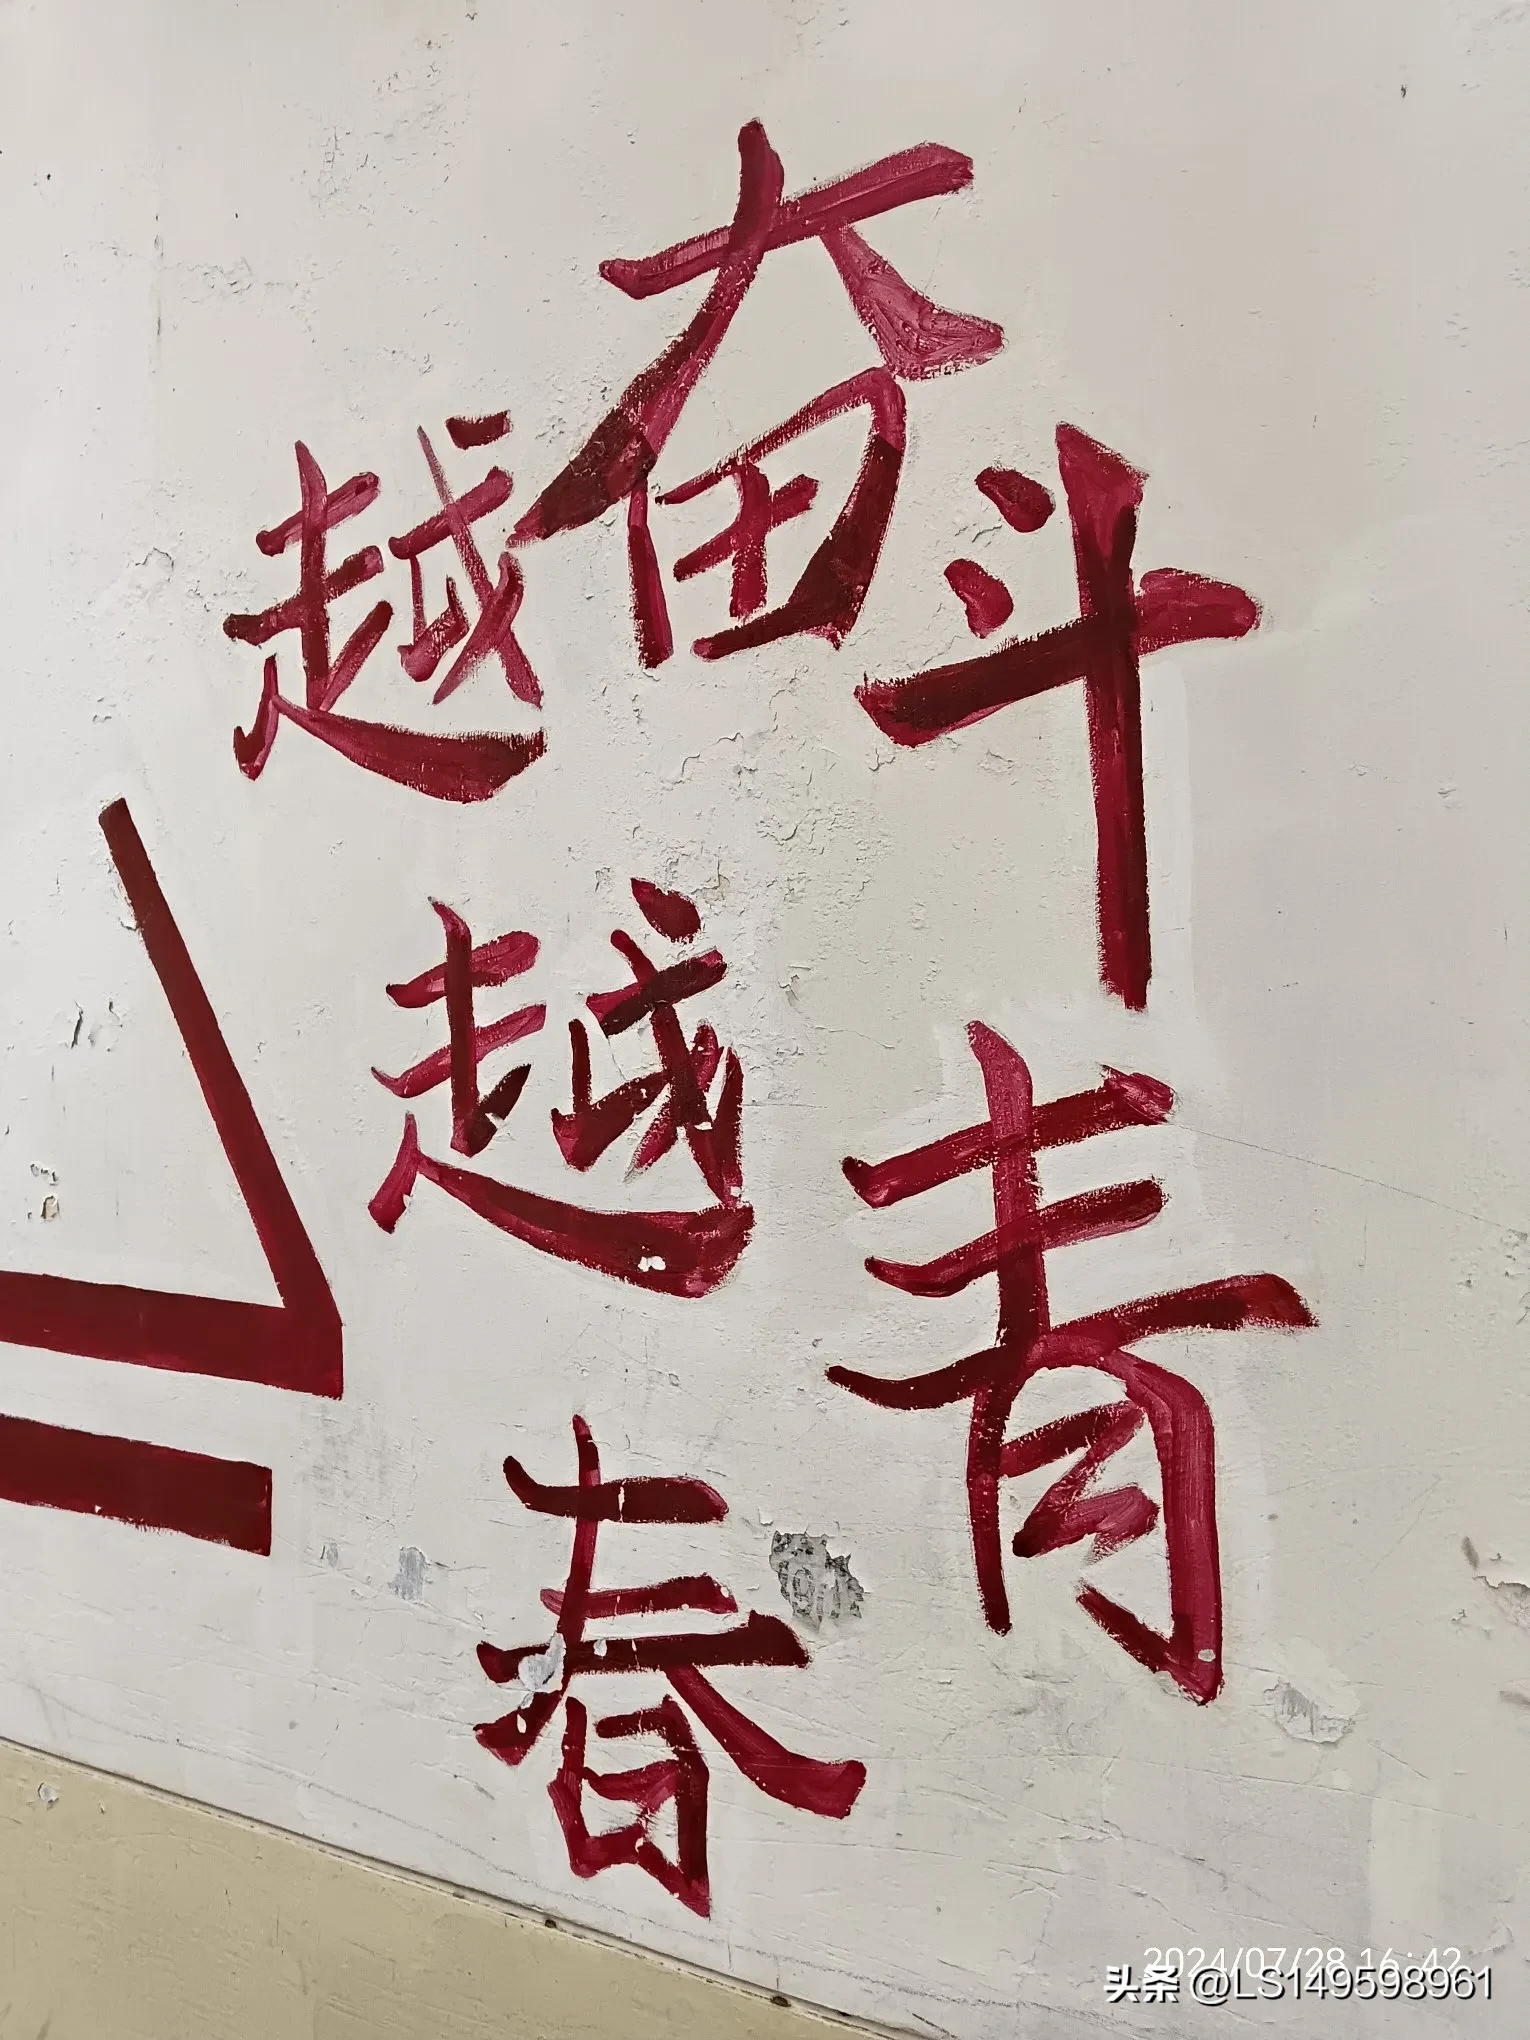 越奋斗
越青春
2024/07/28 16:42
头条 @LS149598961